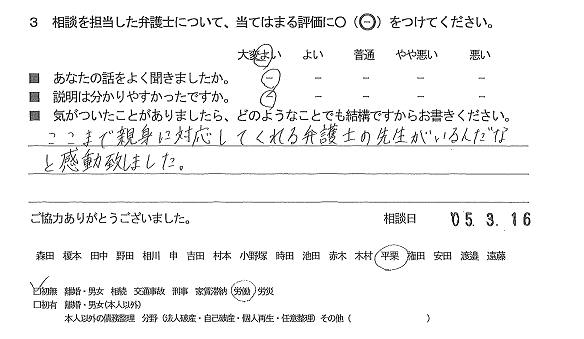 3 相談を担当した弁護士について、当てはまる評価に〇（－）をつけてください。
大変よい よい 普通 やや悪い 悪い
■ あなたの話をよく聞きましたか。 － － － － －
■ 説明は分かりやすかったですか。 － － － － －
■ 気がついたことがありましたら、どのようなことでも結構ですからお書きください。
ここまで親身に対応してくれる弁護士の先生がいるんだな
と感動致しました。
ご協力ありがとうございました。 相談日 '05. 3. 16
森田 榎本 田中 野田 相川 申 吉田 村本 小野塚 時田 池田 赤木 木村 平栗 窪田 安田 渡邉 遠藤
☑初無 離婚・男女 相続 交通事故 刑事 家賃滞納 労働 労災
□初有 離婚・男女（本人以外）
本人以外の債務整理 分野（法人破産・自己破産・個人再生・任意整理）その他（ ）